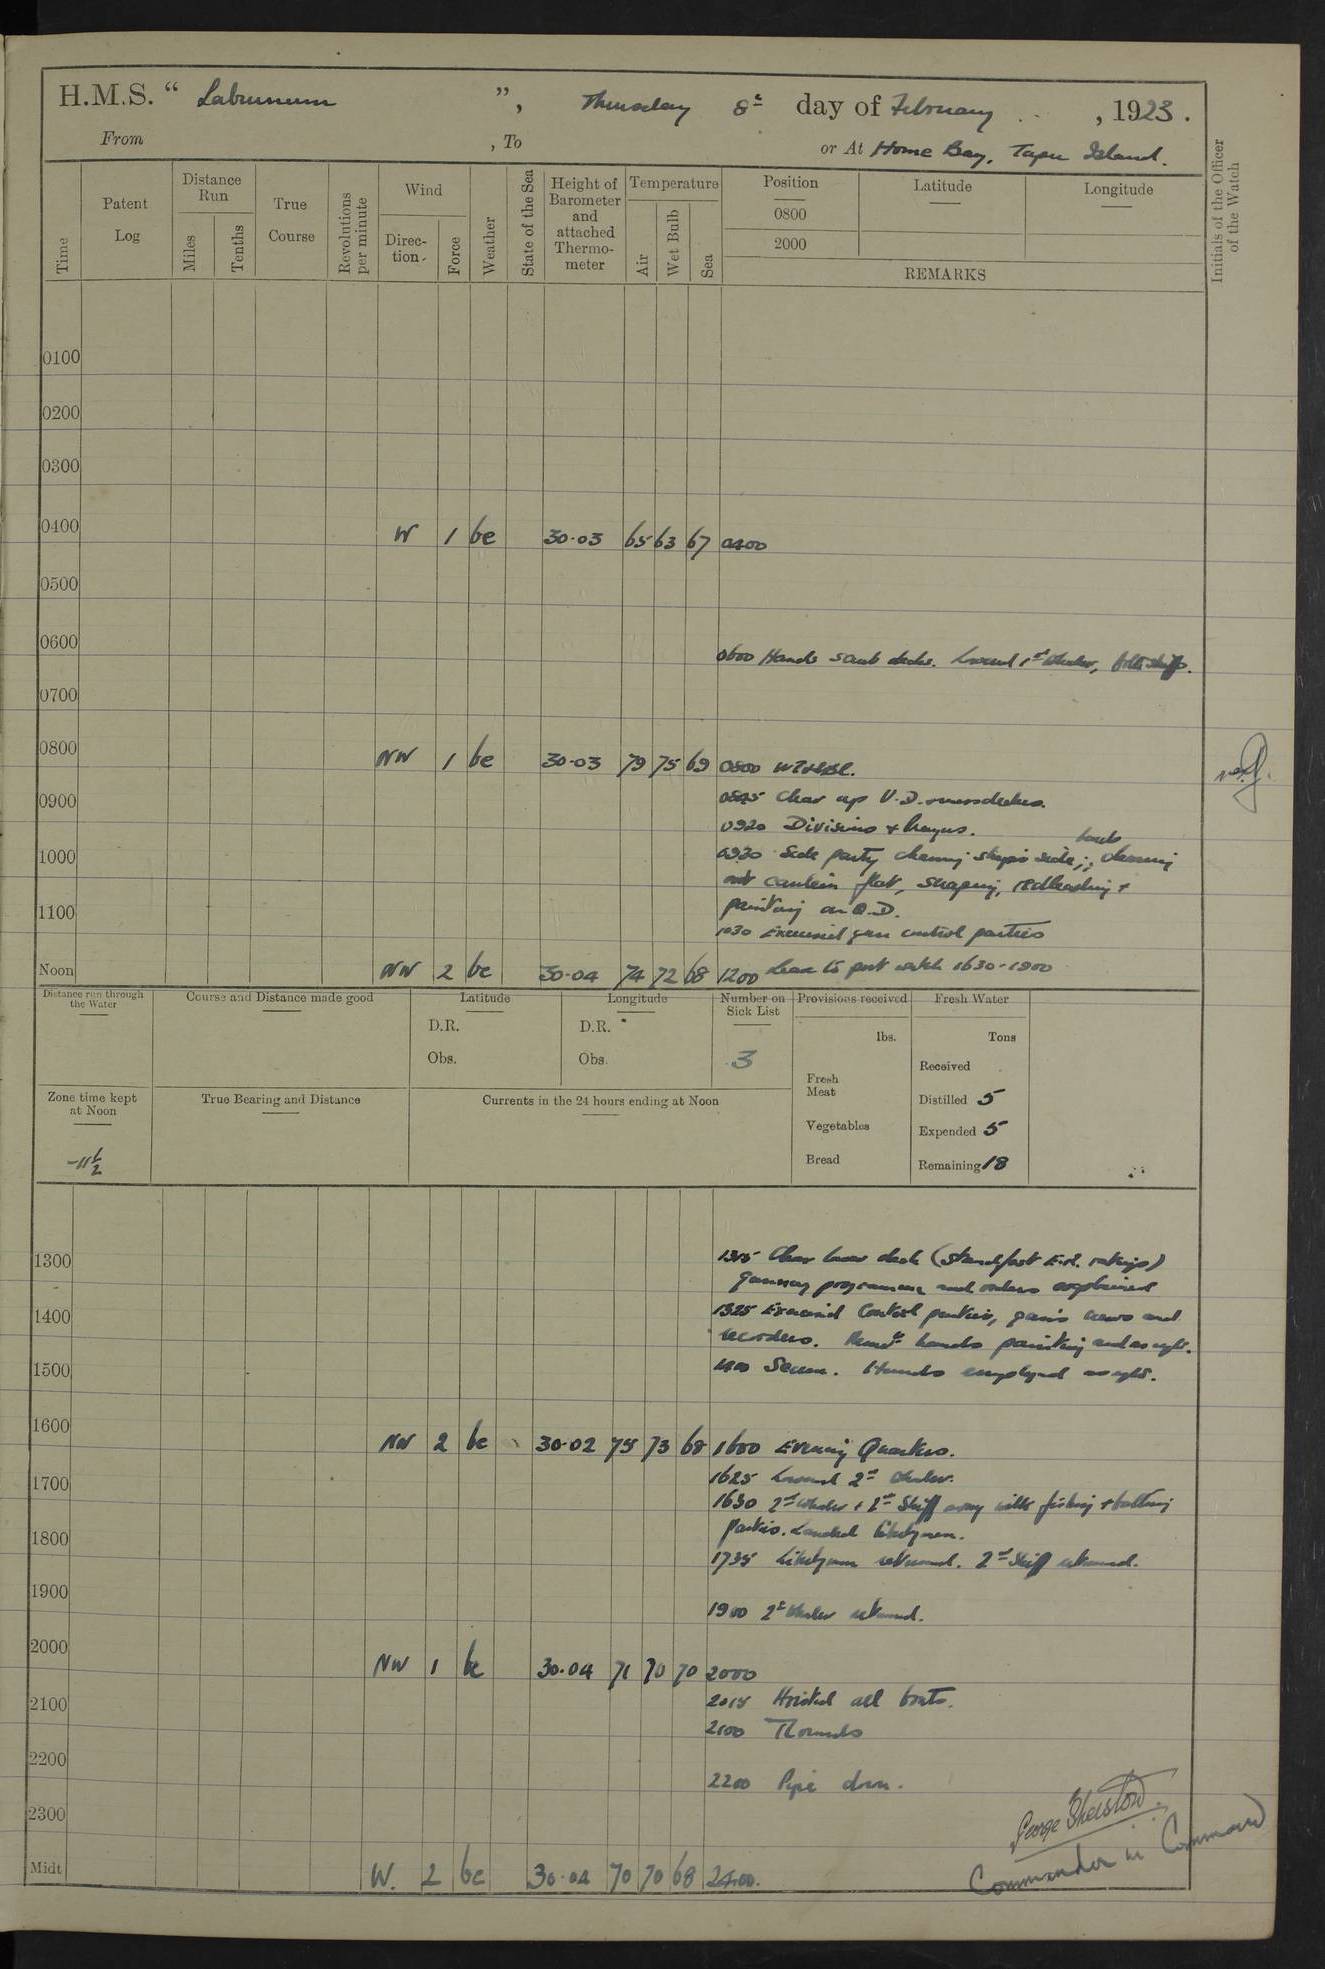 H.M.S. “ Laburnum ”, Thursday 8th day of February , 1923.
From , To or At Home Bay, Tapu Island.
Time
Patent Log
Distance Run
Miles
Tenths
True Course
Revolutions per minute
Wind
Direc-tion.
Force
Weather
State of the Sea
Height of Barometer and attached Thermo-meter
Temperature
Air
Wet Bulb
Sea
Position
Latitude
Longitude
0800
2000
REMARKS
Initials of the Officer of the Watch
0100
0200
0300
0400 W 1 bc 30.03 65 63 67 0400
0500
0600 0600 Hands scrub decks. Lowered 1st Whaler,
0700
0800 NW 1 bc 30.03 79 75 69 0800
0845 Clear up U.D. messdecks.
0900
0920 Divisions & Prayers.
hands
0930 Side party cleaning ship's side; cleaning
1000
out canteen flat, scraping, redleading &
painting on Q.D.
1100
1030 Exercised gun control parties
Noon NW 2 bc 30.04 74 72 68 1200 Leave to port watch 1630-1900
Distance run through the Water
Course and Distance made good
Latitude
D.R.
Obs.
Longitude
D.R.
Obs.
Number on Sick List
3
Provisions received
lbs.
Fresh Meat
Vegetables
Bread
Fresh Water
Tons
Received
Distilled 5
Expended 5
Remaining 18
Zone time kept at Noon
-11½
True Bearing and Distance
Currents in the 24 hours ending at Noon
1300 1315 Clear lower deck (Standfast E.R. ratings)
Gunnery programme and orders explained
1400 1325 Exercised Control parties, gun's crews and
recorders. Remdr hands painting and as reqte.
1500 Secure. Hands employed as reqte.
1600 NW 2 bc 30.02 75 73 68 1600 Evening Quarters.
1625 Lowered 2nd Whaler.
1700
1630 2nd Whaler & 2nd Skiff away with fishing & bathing
parties. Landed libertymen.
1800
1735 Libertymen returned. 2nd Skiff returned.
1900
1900 2nd Whaler returned.
2000 NW 1 bc 30.04 71 70 70 2000
2015 Hoisted all boats.
2100
2100 Rounds
2200
2200 Pipe down.
2300
George
Commander in Command
Midt W. 2 bc 30.04 70 70 68 2400.